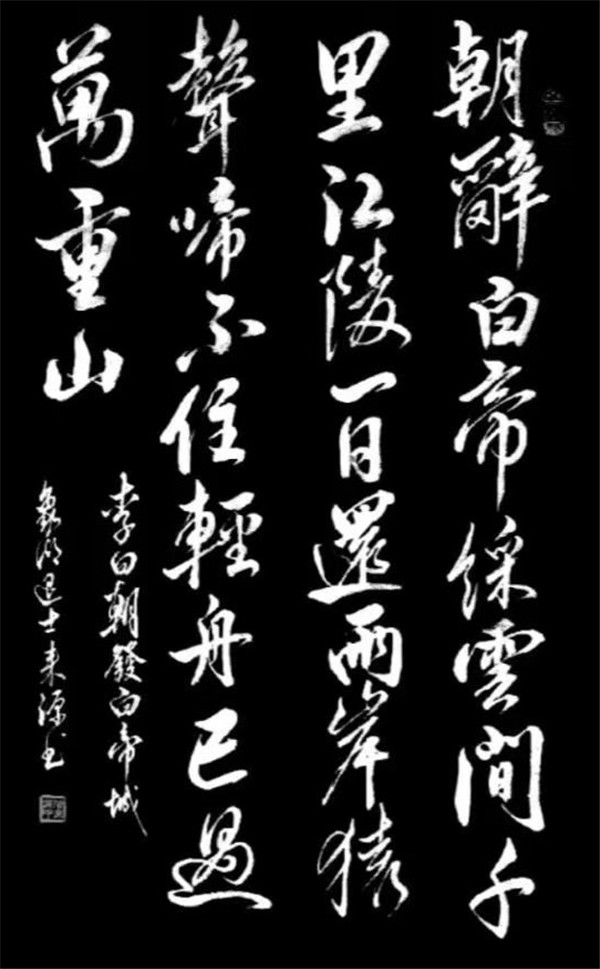 朝辭白帝綵雲間千
里江陵一日還兩岸猿
聲啼不住輕舟已過
萬重山
李白朝發白帝城
退士來源书